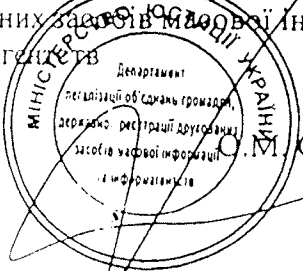 них засобів масової ін
гентств
МІНІСТЕРСТВО ЮСТИЦІЇ УКРАЇНИ
Департамент
легалізації об'єднань громадян,
державної реєстрації друкованих
засобів масової інформації
та інформагентств
О.М.